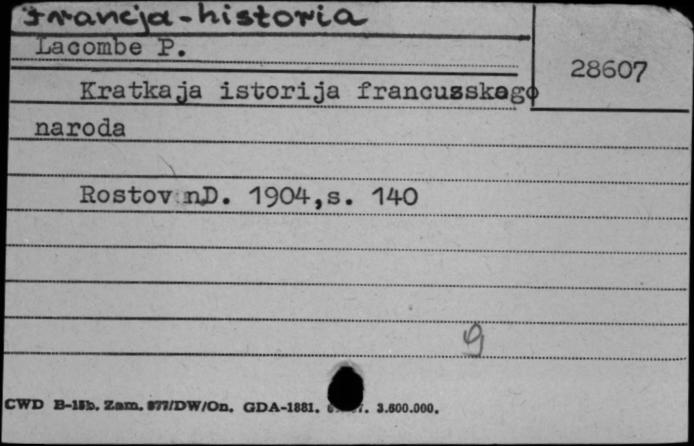 Francja-historia
Lacombe P.
28607
Kratkaja istorija francusskogo
naroda
Rostov nD. 1904,s. 140
9
CWD B-15b. Zam. 877/DW/On. GDA-1881. 3.600.000.